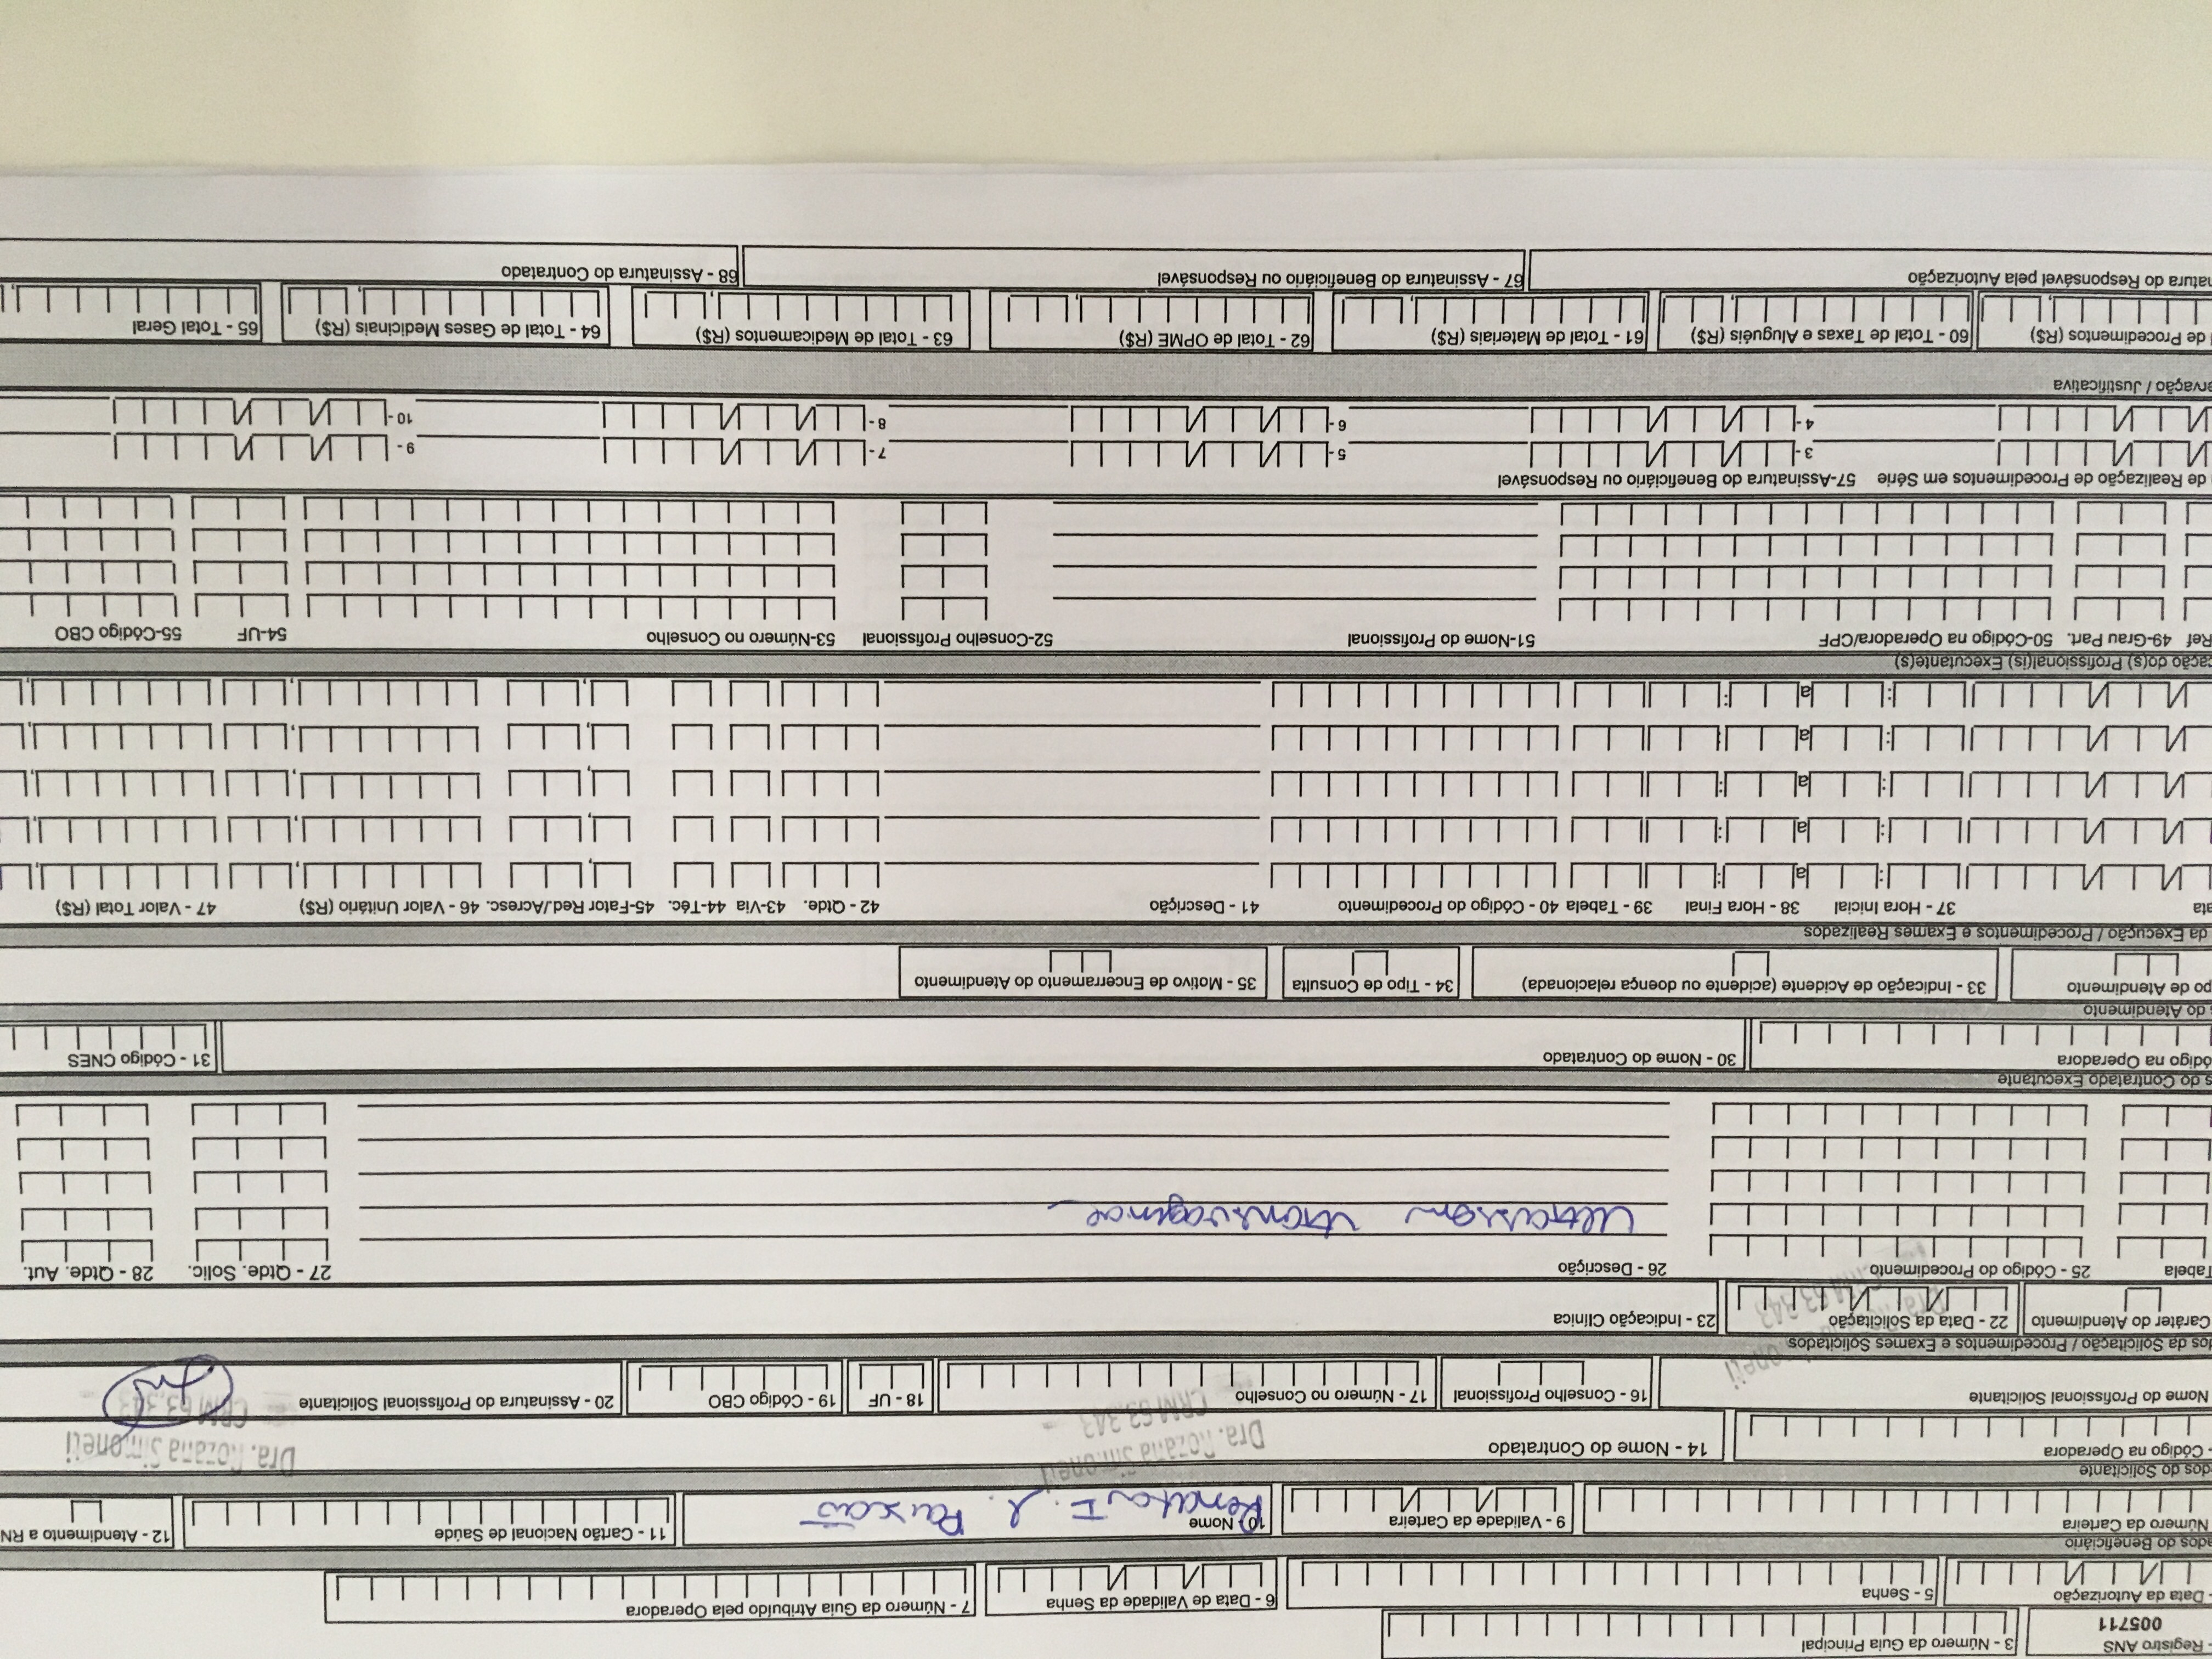 - Registro ANS
005711
3 - Número da Guia Principal
- Data da Autorização
5 - Senha
6 - Data de Validade da Senha
7 - Número da Guia Atribuído pela Operadora
ados do Beneficiário
Número da Carteira
9 - Validade da Carteira
10 - Nome
Renata I. L. Paixão
11 - Cartão Nacional de Saúde
12 - Atendimento a RN
dos do Solicitante
- Código na Operadora
14 - Nome do Contratado
Dra. Rozana Simoneti
CRM 63.343
Dra. Rozana Simoneti
CRM 63.343
Nome do Profissional Solicitante
16 - Conselho Profissional
17 - Número no Conselho
18 - UF
19 - Código CBO
20 - Assinatura do Profissional Solicitante
los da Solicitação / Procedimentos e Exames Solicitados
Caráter do Atendimento
22 - Data da Solicitação
23 - Indicação Clínica
Tabela
25 - Código do Procedimento
26 - Descrição
27 - Qtde. Solic.
28 - Qtde. Aut.
Ultrassom transvaginal
s do Contratado Executante
ódigo na Operadora
30 - Nome do Contratado
31 - Código CNES
do Atendimento
po de Atendimento
33 - Indicação de Acidente (acidente ou doença relacionada)
34 - Tipo de Consulta
35 - Motivo de Encerramento do Atendimento
da Execução / Procedimentos e Exames Realizados
ata
37 - Hora Inicial
38 - Hora Final
39 - Tabela
40 - Código do Procedimento
41 - Descrição
42 - Qtde.
43-Via
44-Téc.
45-Fator Red./Acresc.
46 - Valor Unitário (R$)
47 - Valor Total (R$)
a
a
a
a
a
cação do(s) Profissional(is) Executante(s)
Ref
49-Grau Part.
50-Código na Operadora/CPF
51-Nome do Profissional
52-Conselho Profissional
53-Número no Conselho
54-UF
55-Código CBO
de Realização de Procedimentos em Série
57-Assinatura do Beneficiário ou Responsável
3 -
5 -
7 -
9 -
4 -
6 -
8 -
10 -
rvação / Justificativa
l de Procedimentos (R$)
60 - Total de Taxas e Aluguéis (R$)
61 - Total de Materiais (R$)
62 - Total de OPME (R$)
63 - Total de Medicamentos (R$)
64 - Total de Gases Medicinais (R$)
65 - Total Geral
natura do Responsável pela Autorização
67 - Assinatura do Beneficiário ou Responsável
68 - Assinatura do Contratado